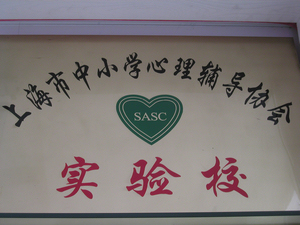 上海市中小学心理辅导协会
SASC
实验校